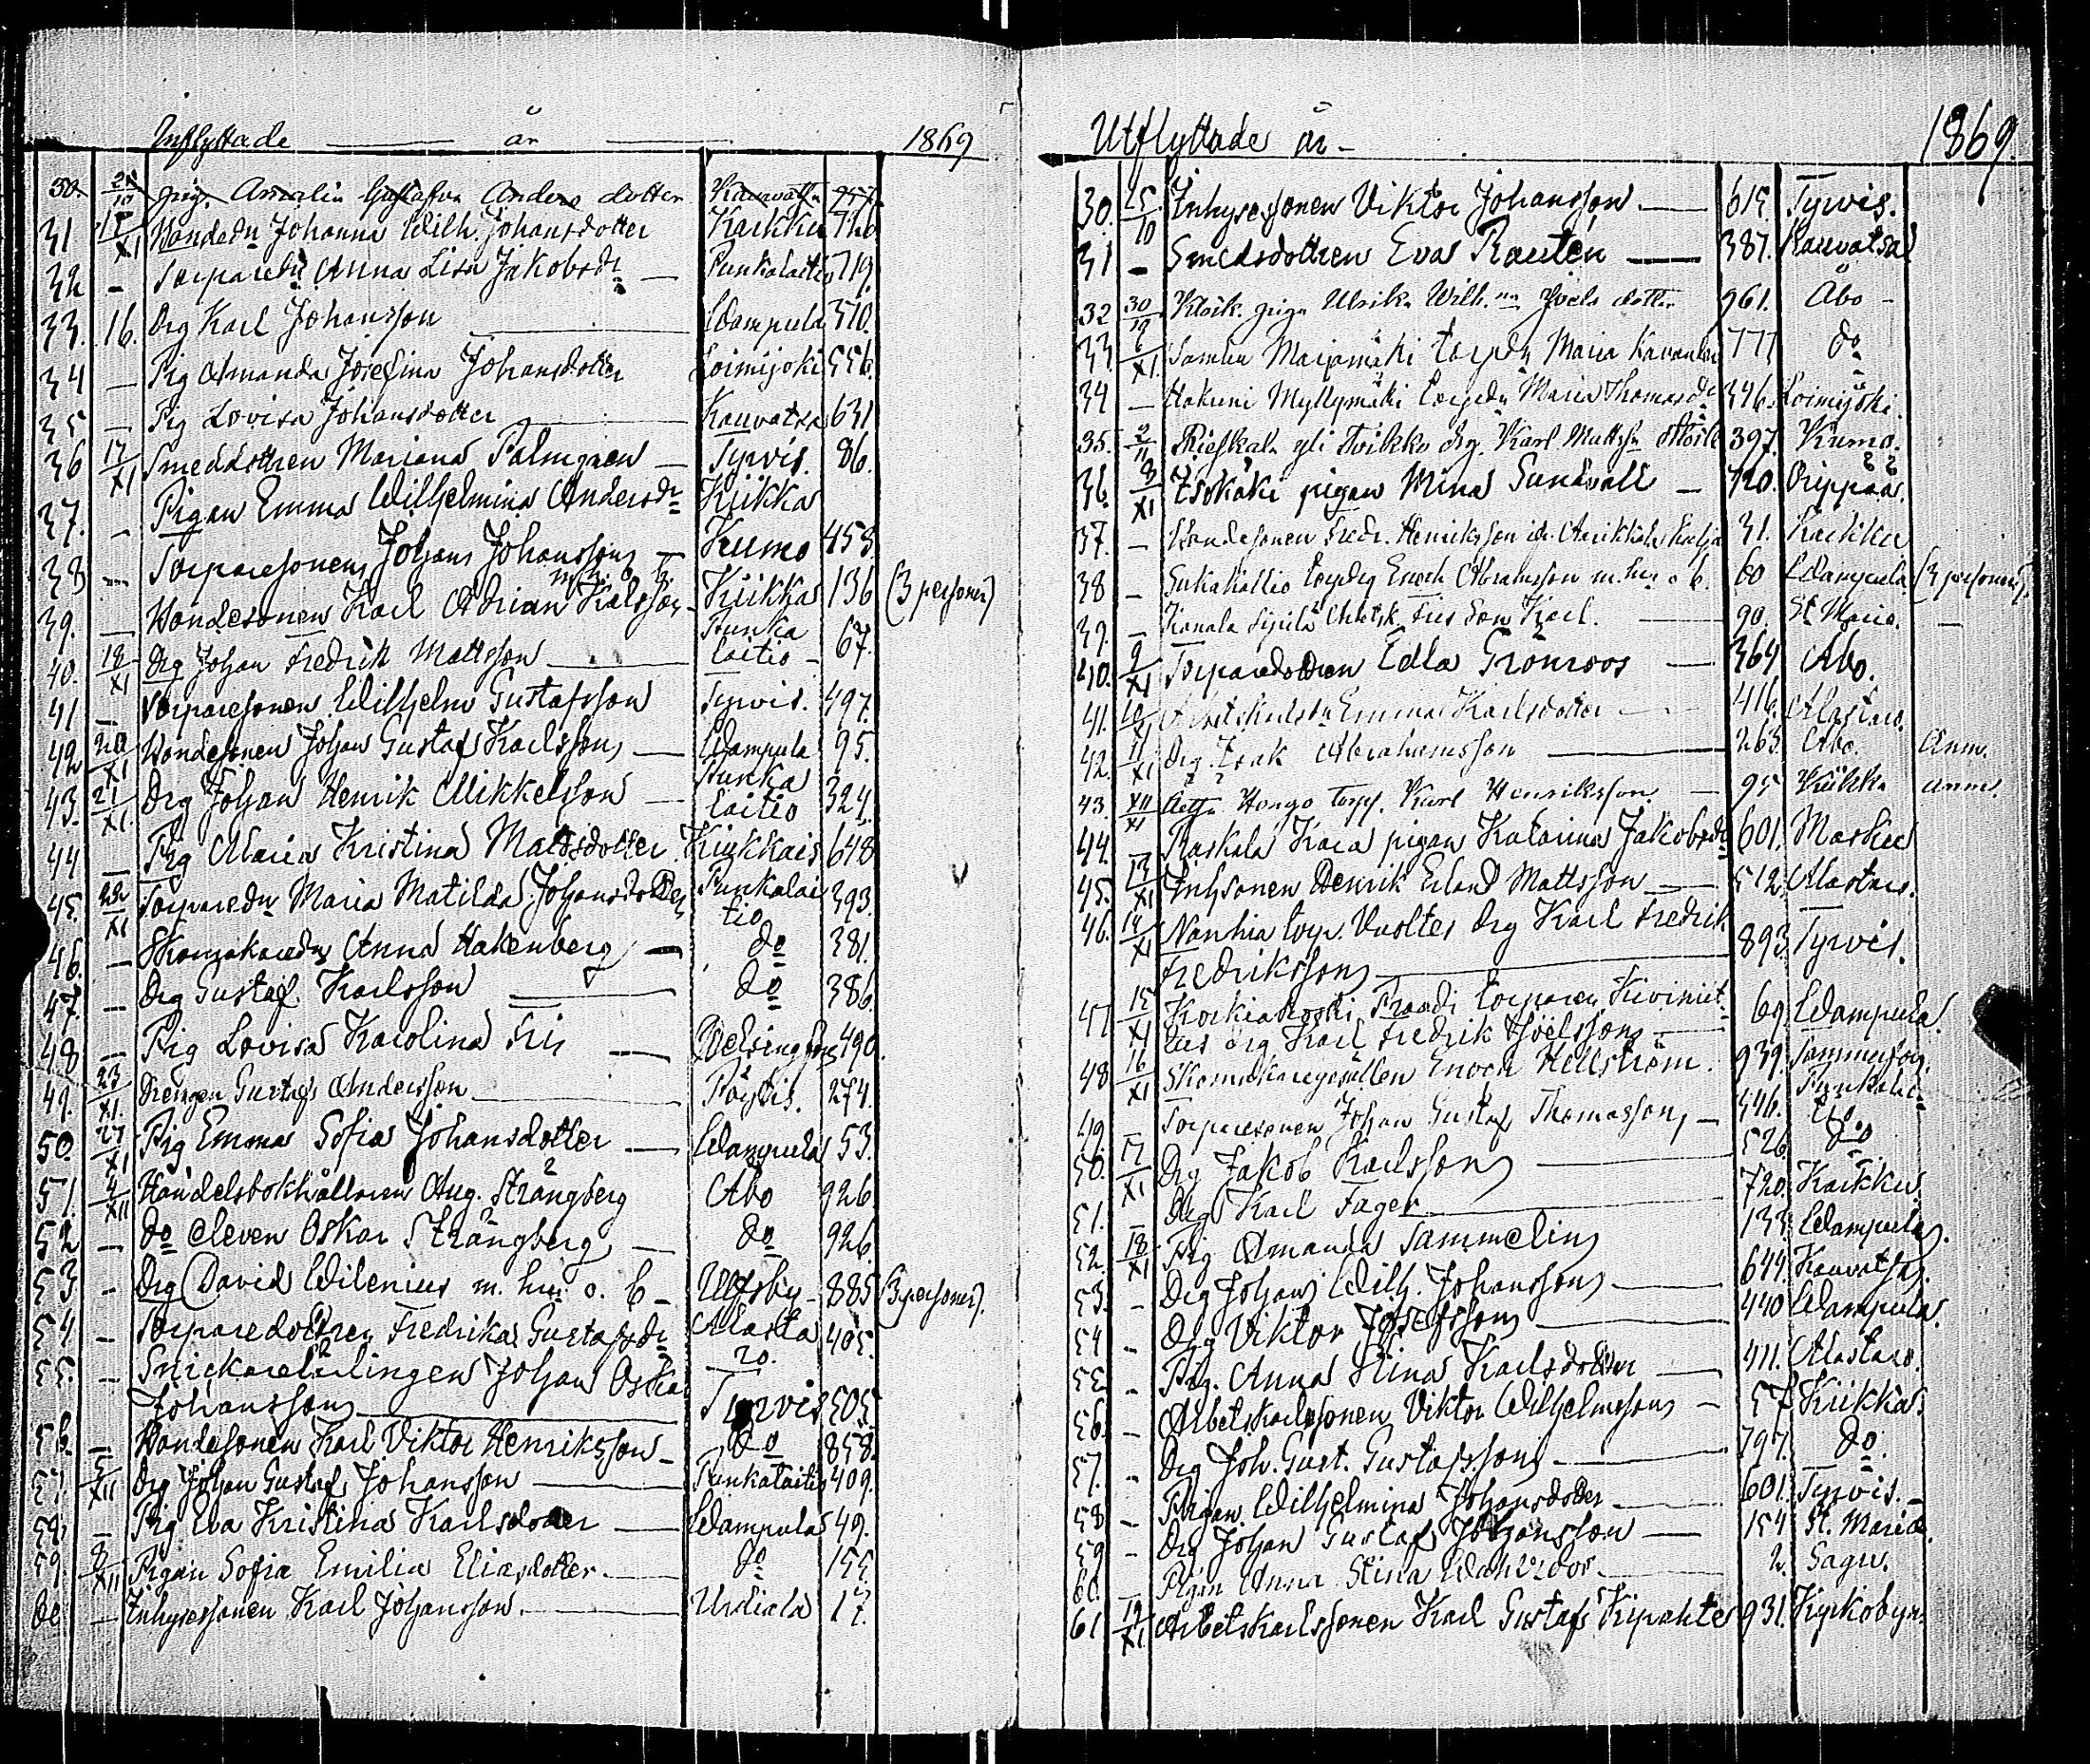 Inflyttade år 1869
30. 25/10 pig. Amalia Gustafva Anders dotter Kauvatsa 957.
31 15/XI Bondedn Johanna Wilh. Johansdotter Karkku 720
32 - Torparedn Anna Lisa Jakobsdr - Punkalaitio 719.
33. 16. Drg Karl Johansson Wampula 370.
34 - Pig Amanda Josefina Johansdotter Loimijoki 556.
35 - Pig Lovisa Johansdotter Kauvatsa 631
36 17/XI Smeddottren Mariana Palmgren - Tyrvis. 86.
37. - Pigan Emma Wilhelmina Andersdr Kiikka
38 - Torparesonen Johan Johansson - Kumo 453.
m. h. o. b.
39. - Bondesonen Karl Adrian Kalsson - Kiikka 136 (3 personer)
40. 18/XI Drg Johan Fredrik Mattsson Punka laitio - 67.
41 - Torparesonen Wilhelm Gustafsson Tyrvis. 497.
42 20/XI Bondesonen Johan Gustaf Karlsson - Wampula 95.
43. 21/XI. Drg Johan Henrik Mikkelsson - Punka laitio 324.
44 - Pig Maria Kristina Mattsdotter Kiukkais 648
45. 22/XI Torparedn Maria Matilda Johansdotter Punkalai tio 393.
46. - Skomakaredn Anna Hakenberg - do 381.
47. - Drg Gustaf Karlsson do 386
48 - Pig Lovisa Karolina Fri - Helsingfors 490.
49. 23/XI. Drengen Gustaf Andersson Pöytis. 274.
50. 27/XI Pig Emma Sofia Johansdotter - Wampula 53.
51. 4/XII Handelsbokhållaren Aug. Strångberg Åbo 926
52 - do eleven Oskar Strångberg - do 926.
53 - Drg David Wilenius m. hu. o. b - Ulfsby - 885 (3 personer).
54 - Torparedottren Fredrika Gustafsdr Alasta ro. 405.
55. - Snickarelärlingen Johan Oskar
Johansson Tyrvis 505.
56. - Bondesonen Karl Viktor Henriksson - do 858.
57. 5/XII Drg Johan Gustaf Johansson Punkalaitio 409.
58. - Pig Eva Kristina Karlsdotter - Wampula 49.
59. 8/XII Pigan Sofia Emilia Eliasdotter. do 155.
60 - Inhysessonen Karl Johansson. Urdiala 17.
Utflyttade år - 1869.
30. 25/10 Inhysessonen Viktor Johansson - 615. Tyrvis.
31 - Smedsdottren Eva Rautén - 387. Kauvatsa
32 30/10 Klock. piga Ulrika Wilh.na Joels dotter 961. Åbo -
33. 6/XI. Sambu Marjamäki torpdn Maria Kavander 777 do
34 - Hakuni Myllymäki torpdn Maria Thomasdr 346. Loimijoki.
35. 2/11 yli drg. Karl Mattss 397. Kumo.
36. 8/XI Isokäki pigan Mina Sundvall - 720. Orippää.
37. - Bondesonen Fredr. Henriksson 31. Karkku
38 - Sukakallio torpdrg Enoch Abramsson m. hu o b. 60 Wampula (3 personer).
39. - Kanala Sipilä son Karl. 90. St Marie. -
40. 9/XI Torparedottren Edla Grönroos - 364 Åbo.
41. 10/XI Arbetskarlsdn Emma Karlsdotter - 416. Alastaro.
42. 11/XI Drg. Isak Abrahamsson 263. Åbo. Anm.
43. XII/XI Hongo torp. Karl Henriksson. - 95 Kiikka anm.
44. - Raskala Kara pigan Katarina Jakobsdr 601. Masku
45. 13/XI Inhsonen Henrik Erland Mattsson 512. Alastaro.
46. 14/XI Nanhia torp. Vuoltee drg Karl Fredrik
Fredriksson 893. Tyrvis.
47 15/XI Korkiakoski Praadi torparen Kiviniit-
tus drg Karl Fredrik Hjoelsson 69. Wampula.
48 16/XI Skomakaregesällen Enoch Hellström. 939. Tammerfors.
49 - Torparesonen Johan Gustaf Thomasson - 546. Punkalai- tio.
50. 17/XI Drg Jakob Karlsson 526. do
51. - Drg Karl Fager 720. Karkku.
52. 18/XI Pig Amanda Sammelin 133. Wampula.
53. - Drg Johan Wilh. Johansson 644. Kauvatsa.
54 - Drg Viktor Josefsson 440 Wampula.
55. - Pig. Anna Stina Karlsdotter - 411. Alastaro.
56. - Arbetskarlssonen Viktor Wilhelmsson - 57 Kiikka.
57. - Drg Joh. Gust. Gustafsson 797. do.
58 - Pigan Wilhelmina Johansdotter 601. Tyrvis. -
59 - Drg Johan Gustaf Johansson - 154 St. Marie
60. Pigan Anna Stina Wahlroos 2. Sagu.
61 19/XI. Arbetskarlssonen Karl Gustaf Kipahtes 931. Kyrkobyn.